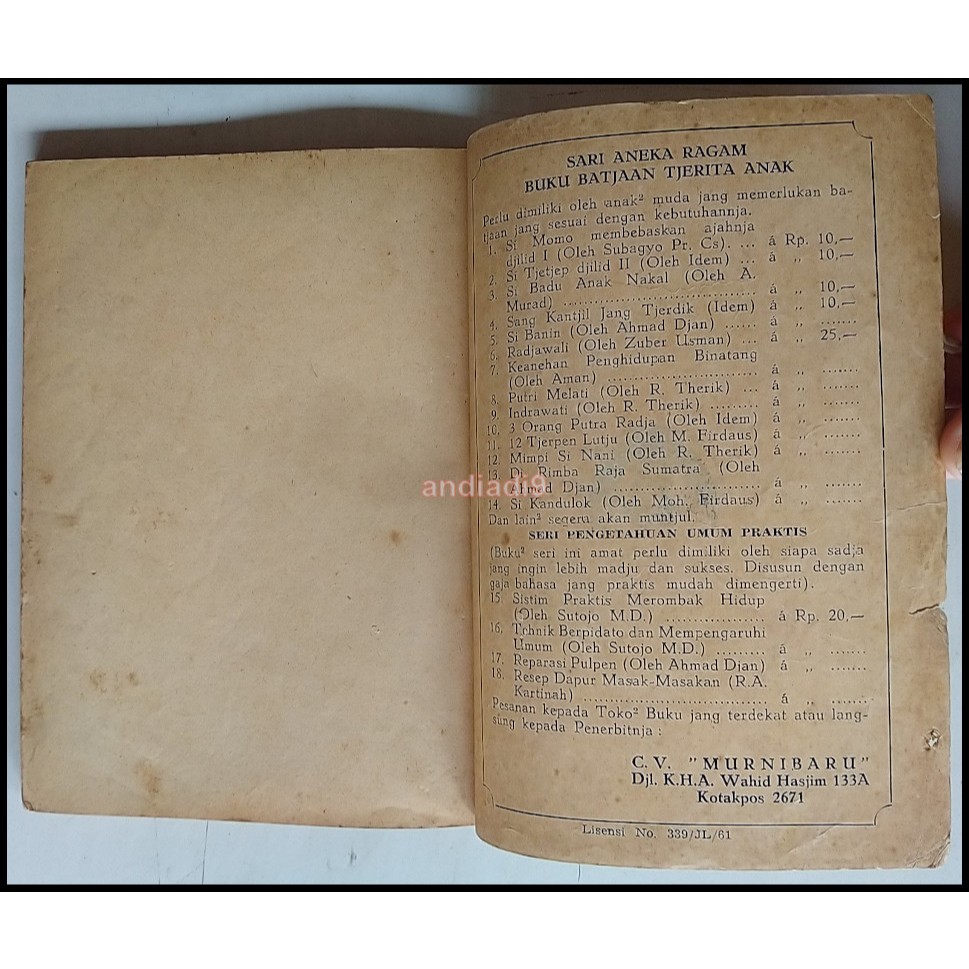 SARI ANEKA RAGAM
BUKU BATJAAN TJERITA ANAK
Perlu dimiliki oleh anak² muda jang memerlukan ba-
tjaan jang sesuai dengan kebutuhannja.
1. Si Momo membebaskan ajahnja
djilid I (Oleh Subagyo Pr. Cs). ... á Rp. 10,—
2. Si Tjetjep djilid II (Oleh Idem) ... á ,, 10,—
3. Si Badu Anak Nakal (Oleh A.
Murad) ................................ á ,, 10,—
4. Sang Kantjil Jang Tjerdik (Idem) á ,, 10,—
5. Si Banin (Oleh Ahmad Djan) ...... á ,, .......
6. Radjawali (Oleh Zuber Usman) ... á ,, 25,—
7. Keanehan Penghidupan Binatang
(Oleh Aman) ......................... á ,, .......
8. Putri Melati (Oleh R. Therik) ... á ,, .......
9. Indrawati (Oleh R. Therik) ......... á ,, .......
10. 3 Orang Putra Radja (Oleh Idem) á ,, .......
11. 12 Tjerpen Lutju (Oleh M. Firdaus) á ,, .......
12. Mimpi Si Nani (Oleh R. Therik) á ,, .......
13. Di Rimba Raja Sumatra (Oleh
Ahmad Djan) ......................... á ,, .......
14. Si Kandulok (Oleh Moh. Firdaus) á ,, .......
Dan lain² segera akan muntjul.
SERI PENGETAHUAN UMUM PRAKTIS
(Buku² seri ini amat perlu dimiliki oleh siapa sadja
jang ingin lebih madju dan sukses. Disusun dengan
gaja bahasa jang praktis mudah dimengerti).
15. Sistim Praktis Merombak Hidup
(Oleh Sutojo M.D.) .................. á Rp. 20,—
16. Tehnik Berpidato dan Mempengaruhi
Umum (Oleh Sutojo M.D.) ......... á ,, .......
17. Reparasi Pulpen (Oleh Ahmad Djan) á ,, .......
18. Resep Dapur Masak-Masakan (R.A.
Kartinah) ............................... á ,, .......
Pesanan kepada Toko² Buku jang terdekat atau lang-
sung kepada Penerbitnja :
C. V. "MURNIBARU"
Djl. K.H.A. Wahid Hasjim 133A
Kotakpos 2671
Lisensi No. 339/JL/61
andiadi9